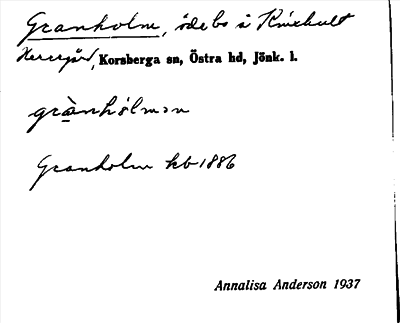 Granholm, ödebs å Knixhult
Herrgård, Korsberga sn, Östra hd, Jönk. l.
grànhòlmən
Granholm kb 1886
Annalisa Anderson 1937